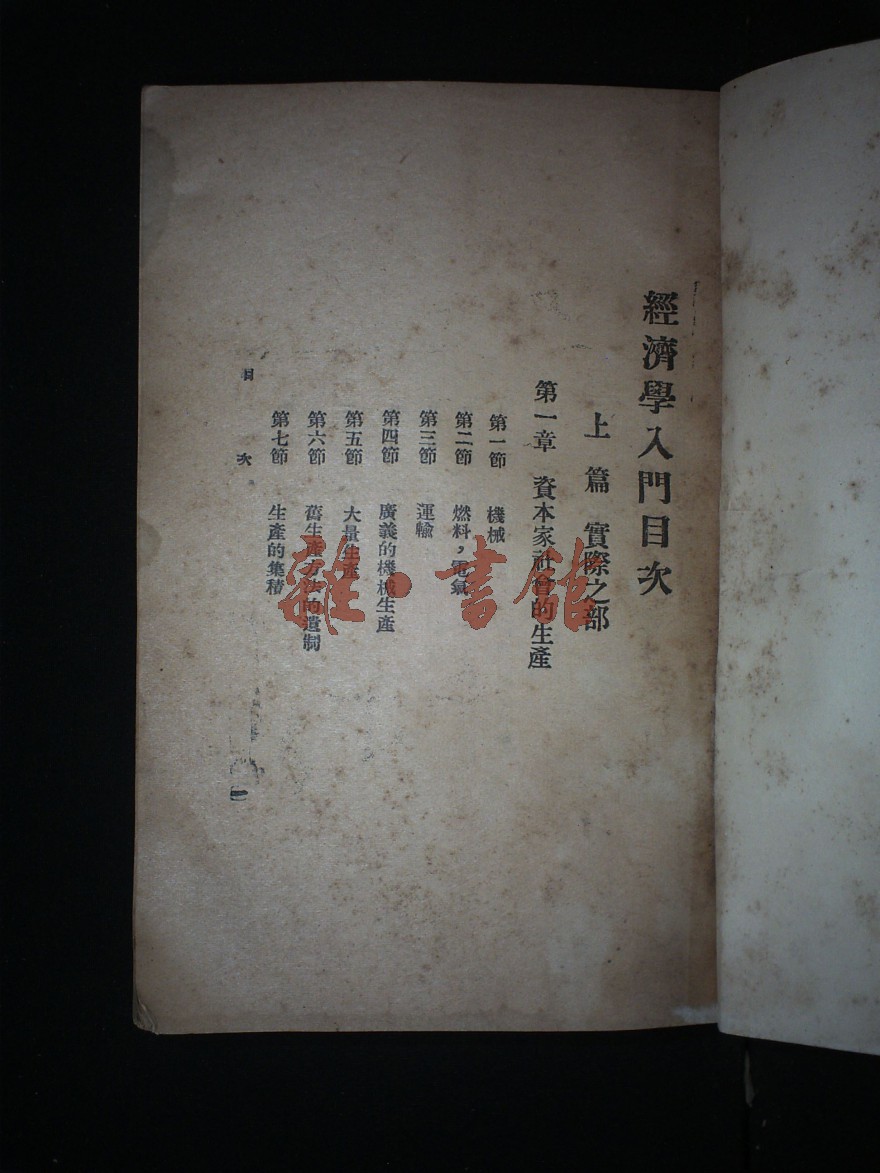 經濟學入門目次
上篇 實際之部
第一章 資本家社會的生產
第一節 機械
第二節 燃料，電氣
第三節 運輸
第四節 廣義的機械生產
第五節 大量生產
第六節 舊生產方法的遺制
第七節 生產的集積
目次
一
雜·書館